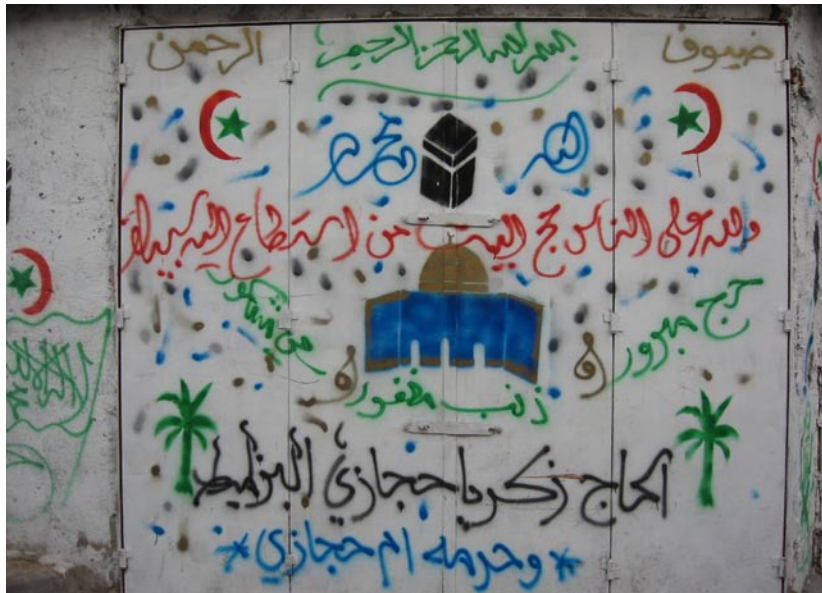 ضيوف الرحمن
بسم الله الرحمن الرحيم
الله محمد
ولله على الناس حج البيت من استطاع اليه سبيلا
حج مبرور
و
ذنب مغفور
و
سعي مشكور
الحاج زكريا حجازي البزاميط
وحرمه ام حجازي
لا اله الا الله